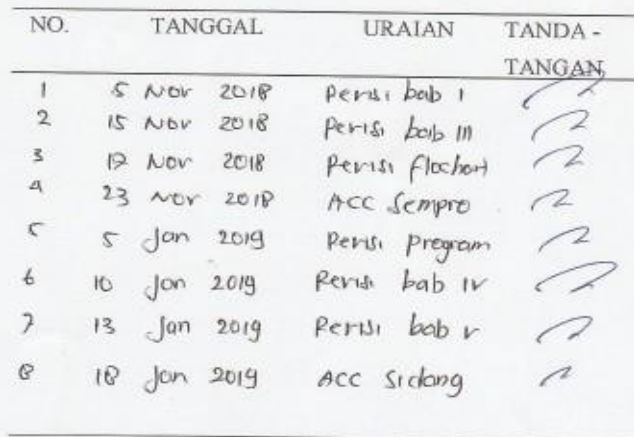 NO. TANGGAL URAIAN TANDA -
TANGAN
1 5 Nov 2018 Revisi bab I
2 15 Nov 2018 Revisi bab III
3 19 Nov 2018 Revisi flochart
4 23 Nov 2018 ACC Sempro
5 5 Jan 2019 Revisi program
6 10 Jan 2019 Revisi bab IV
7 13 Jan 2019 Revisi bab V
8 18 Jan 2019 ACC Sidang